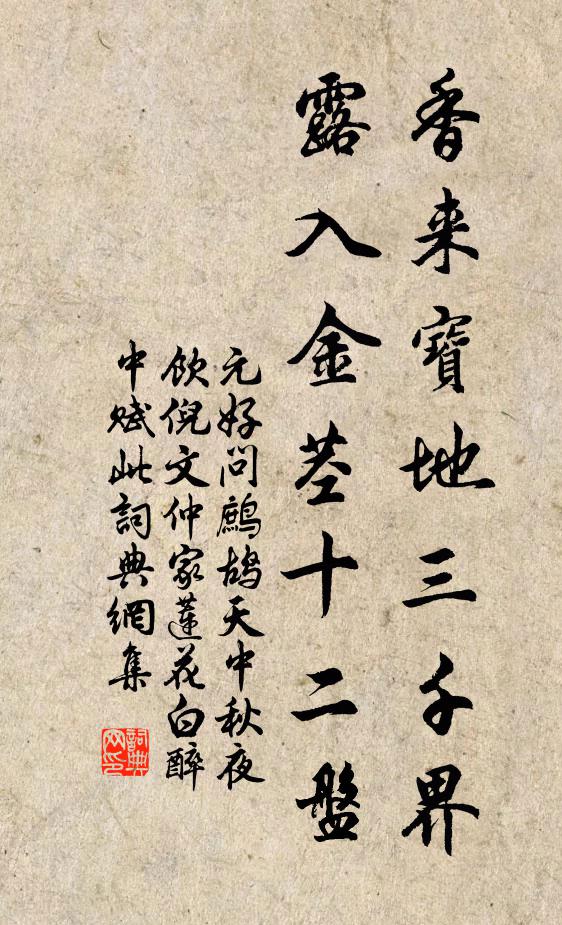 香来寶地三千界
露入金莖十二盤
元好問鷓鴣天中秋夜
飲倪文仲家蓮花白醉
中賦此詞典網集
詞典网印